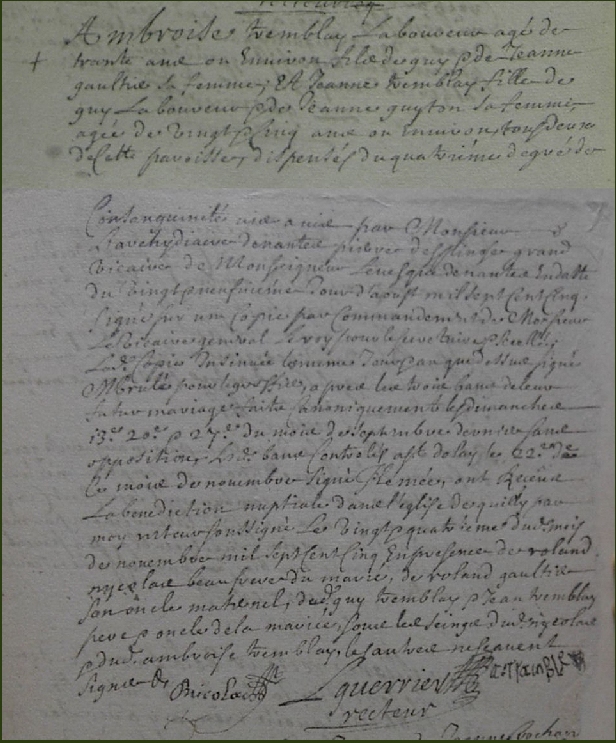 Ambroise tremblay Laboureur agé de
trante ans ou Environ fils de guy p de Jeanne
gaultier sa femme, Et Jeanne tremblay fille de
guy Laboureur p de Jeanne guyton sa femme
agée de vingt p cinq ans ou Environ tous deux
de Cette paroisse, dispensés du quatriéme degré de
Consanguinité par Monsieur
L'archidiacre de nantes grand
vicaire de Monseigneur L'evesque de nantes En datte
du vingt neufiéme Jour d'aoust mil sept Cent Cinq
signé sur un Copie par Commandement de Monsieur
Le vicaire general Le roy pour le secretaire
Lad. Copie Insinuée Le mesme Jour que dessus signé
Mbrulé pour le greffier, aprés les trois bans de leur
futur mariage faits Canoniquement les dimanches
13.e 20.e p 27.e du mois de septembre dernier sans
opposition, Lesd. bans le 22.e de
Ce mois de novembre signé ont Receu
La benediction nuptiale dans l'eglise de quilly par
moy recteur soussigné Le vingt p quatriéme dud. mois
de novembre mil sept Cent Cinq En presence de roland
nicolas beaufrere du marié, de roland gaultier
son oncle maternel, de guy tremblay p Jean tremblay
pere p oncle de la mariée, sous les seings dud. nicolas
p dud. ambroise tremblay, les autres ne scavent
signer
R nicolas L guerrier
recteur